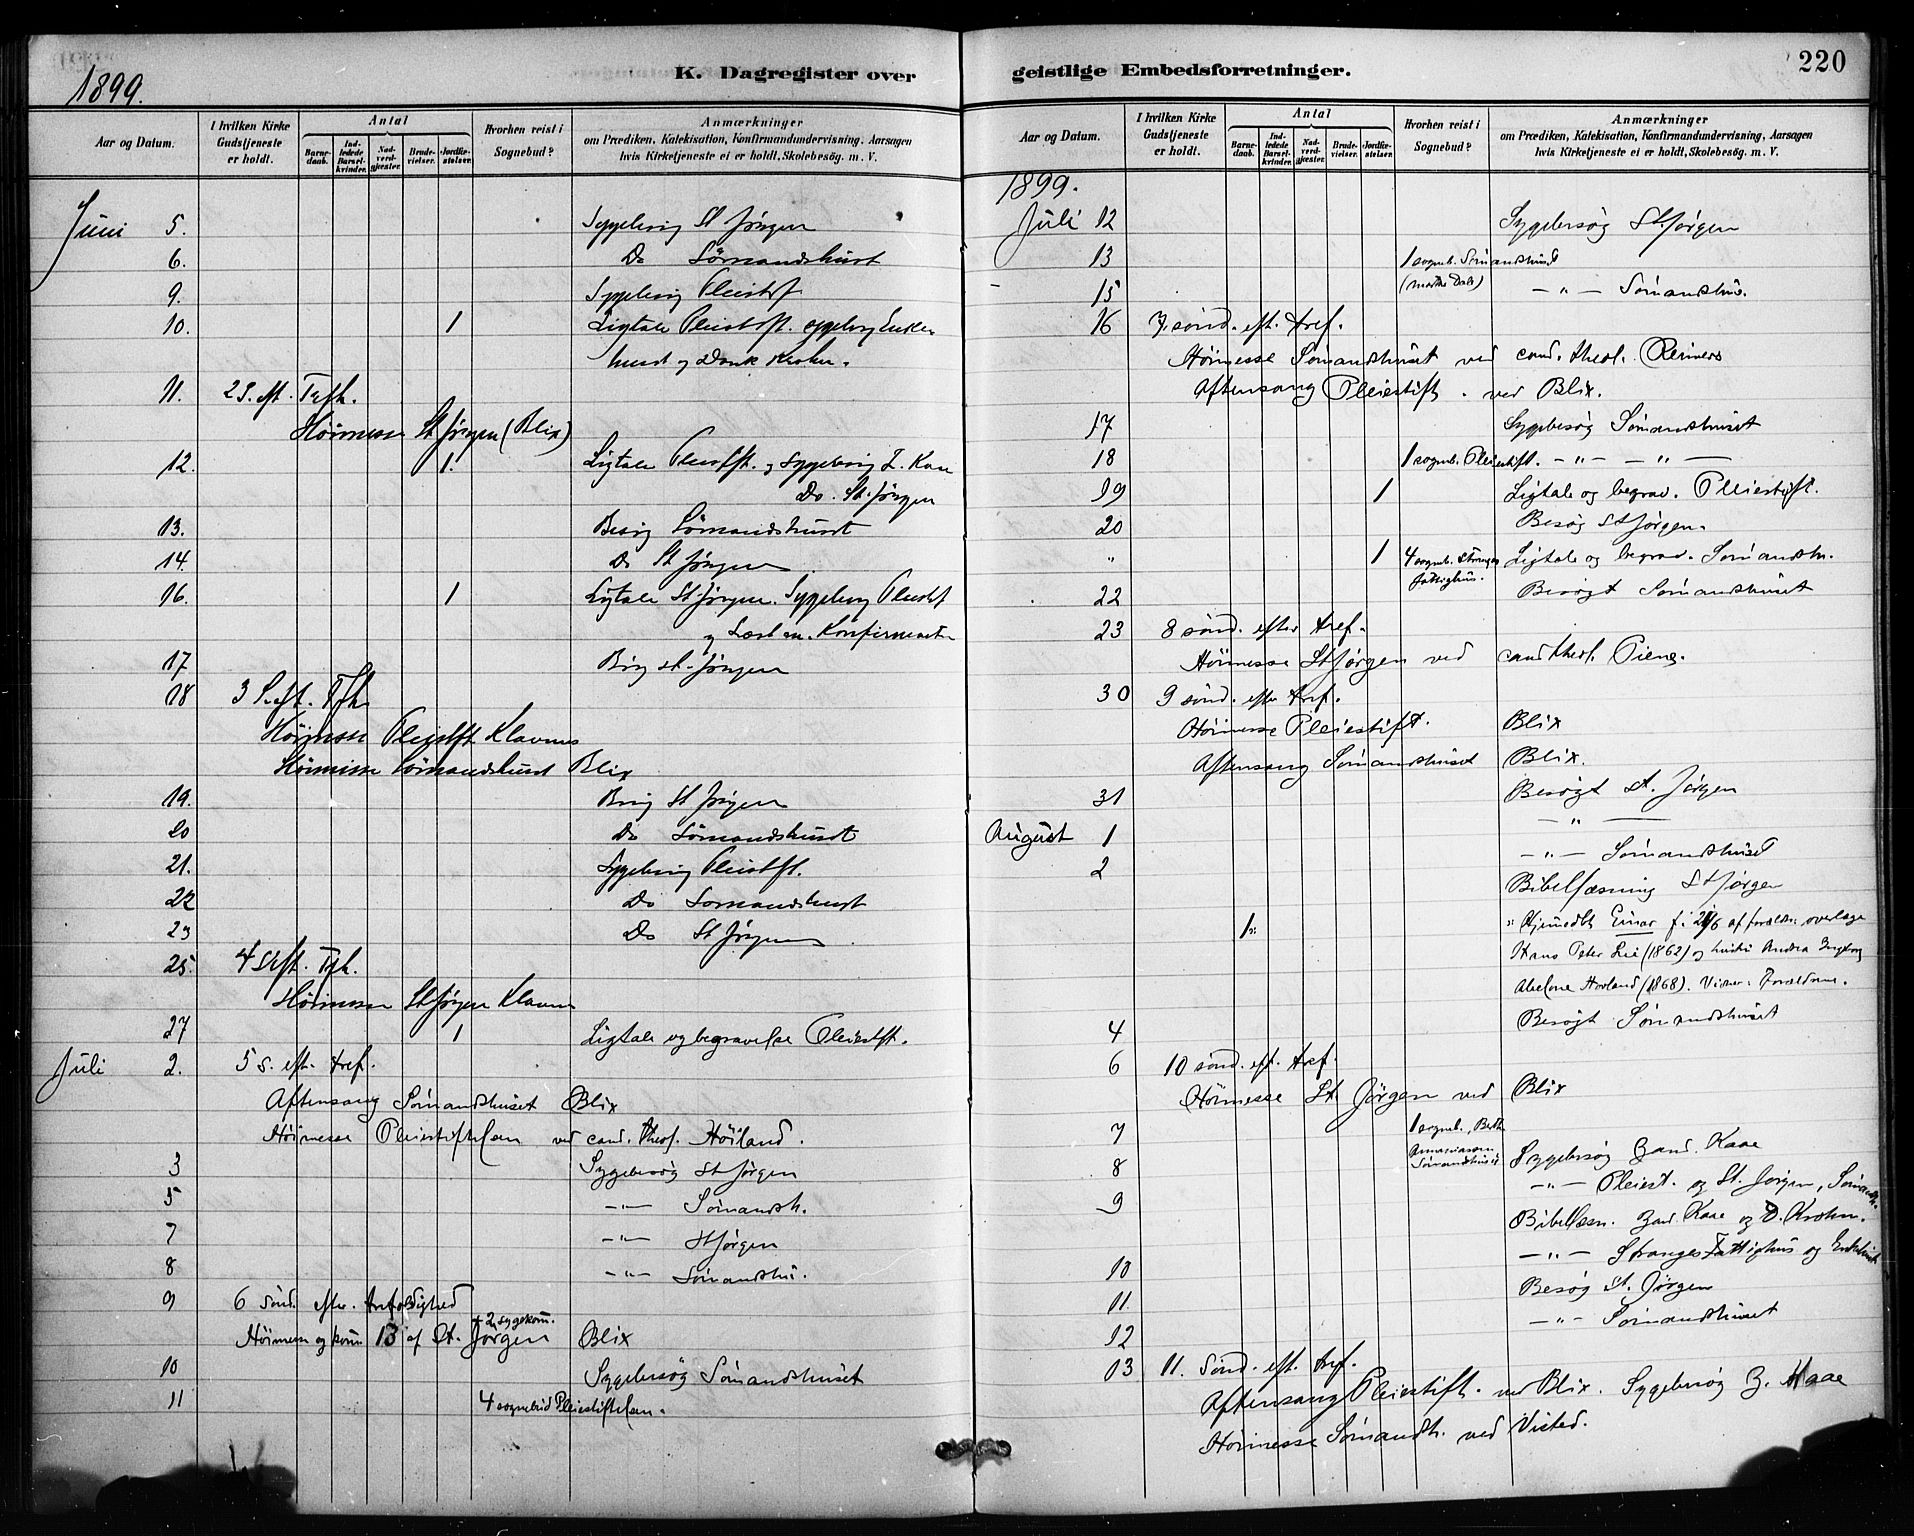 1899.
K. Dagregister over
Aar og Datum.
I hvilken Kirke Gudstjeneste er holdt.
Antal
Barne-daab.
Ind-ledede Barsel-kvinder.
Nad-verd-gjæster.
Brude-vielser.
Jordfæ-stelser.
Hvorhen reist i Sognebud?
Anmærkninger
om Prædiken, Katekisation, Konfirmandundervisning, Aarsagen
hvis Kirketjeneste ei er holdt, Skolebesøg. m. V.
Juni 5. St Jörgen
6. Do Sömandshuset
9. Pleiestift
10. 1 Ligtale Pleiestift.
og Dank Krohn.
11. 2 S. eft. Trefh.
Höimesse St Jörgen (Blix)
12. 1. Ligtale Pleiestft. og Z. Kaae
Do. St. Jörgen
13. Besög Sömandshuset
14. Do St Jörgen
16. 1 Ligtale St Jörgen. Pleiestift
og Læst m. Konfirmanter
17 Besög St. Jörgen
18 3 S. eft. Tfh.
Höimesse Pleiestft Klavnes
Höimesse Sömandshuset Blix
19. Besög St Jörgen
20 Do Sömandshuset
21. Pleiestft.
22 Do Sömandshuset
23 Do St Jörgen
25. 4 S eft. Tfh.
Höimesse St Jörgen Klavnes
27 1 Ligtale og begravelse Pleiestft.
Juli 2. 5 s. eft. tref.
Aftensang Sömandshuset Blix
Höimesse Pleiestiftelsen ved cand. theol. Höiland.
3 Sygebesög St Jörgen
5 -"- Sömandsh.
7 -"- St Jörgen
8 -"- Sömandshu.
9 6 Sönd. efter. trefoldighed
Höimesse og kom 13 af St. Jörgen + 2 sygekom. Blix
10 Sygebesög Sömandshuset
11 4 sognebud Pleiestiftelsen.
geistlige Embedsforretninger.
220
Aar og Datum.
I hvilken Kirke Gudstjeneste er holdt.
Antal
Barne-daab.
Ind-ledede Barsel-kvinder.
Nad-verd-gjæster.
Brude-vielser.
Jordfæ-stelser.
Hvorhen reist i Sognebud?
Anmærkninger
om Prædiken, Katekisation, Konfirmandundervisning, Aarsagen
hvis Kirketjeneste ei er holdt, Skolebesøg. m. V.
1899.
Juli 12 Sygebesög St Jörgen
13 1 sogneb. Sömandshuset
15 -"- Sömandshus.
16 7. sönd. eft. tref.
Höimesse Sömandshuset ved cand. theol. Reimers
Aftensang Pleiestift. ved Blix.
17 Sygebesög Sömandshuset
18 1 sogneb. Pleiestift. -"- -"-
19 1 Ligtale og begrav. Pleiestift.
20 Besög St Jörgen.
" 1 4 sogneb. Stranges fattighus. Ligtale og begrav. Sömandsh.
22 Besögt Sömandshuset
23 8 sönd. efter tref.
Höimesse St Jörgen ved cand theol. Piene.
30 9 sönd. efter tref.
Höimesse Pleiestift. Blix
Aftensang Sömandshuset Blix.
31 Besögt St. Jörgen
August 1 -"-
2 -"- Sömandshuset
Bibellæsning St Jörgen
1" Hjemmedöbt Einar f. af forældre: overlæge
Hans Peter Lie (1862) og hustru Andrea Ingeborg
Abelone Hovland (1868). Vidner: Forældrene.
4 Besögt Sömandshuset
6 10 sönd. eft. tref.
Höimesse St. Jörgen ved Blix
7 1 sogneb. Sömandshuset Sygebesög Zand. Kaae
8 -"- Pleiest. og St. Jörgen, Sömandsh.
9 Bibellæsn. Zand. Kaae og D. Krohn.
-"- Stranges Fattighus og Enkehuset
10 Besög St. Jörgen
11. -"- Sömandshuset
12
13 11. Sönd. eft. tref.
Aftensang Pleiestift. ved Blix. Sygebesög Z. Kaae
Höimesse Sömandh. ved Visted.